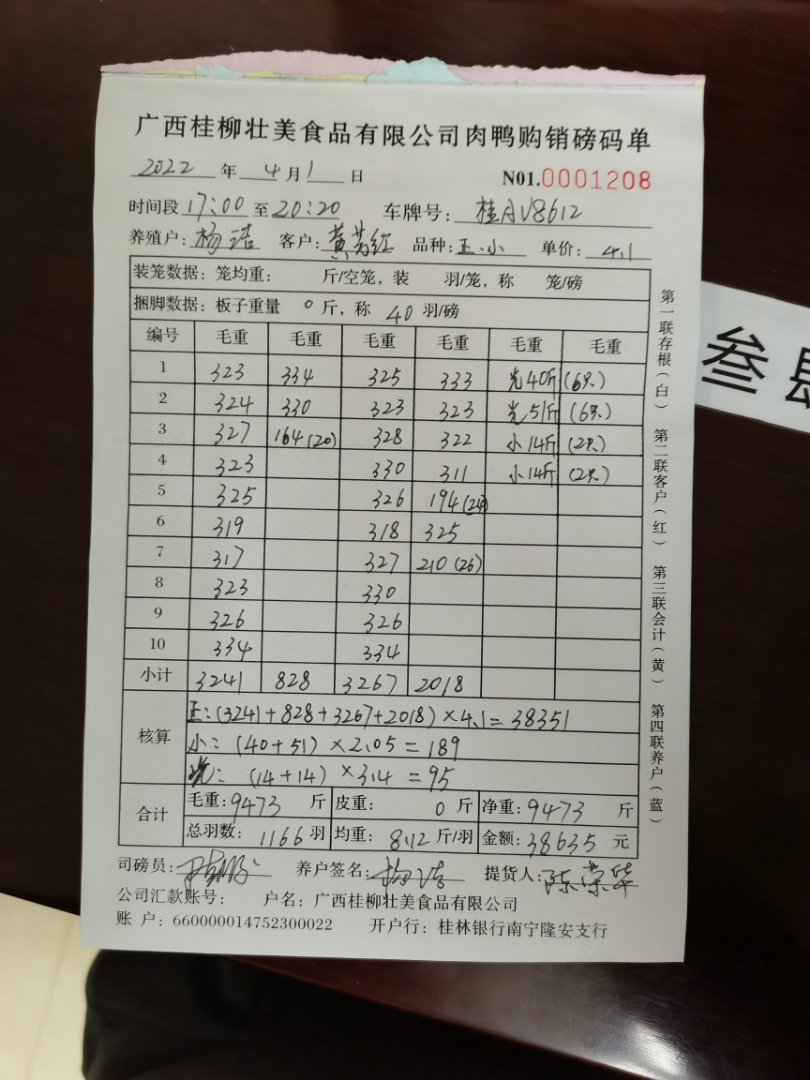 广西桂柳壮美食品有限公司肉鸭购销磅码单
2022 年 4 月 1 日 N01.0001208
时间段 17:00 至 20:20 车牌号: 桂AV8612
养殖户: 杨洁 客户: 黄芳红 品种: 正.小 单价: 4.1
装笼数据: 笼均重: 斤/空笼, 装 羽/笼, 称 笼/磅
捆脚数据: 板子重量 0 斤, 称 40 羽/磅
编号 毛重 毛重 毛重 毛重 毛重 毛重
1 323 334 325 333 光40斤 (6只)
2 324 330 323 323 光51斤 (6只)
3 327 164(20) 328 322 小14斤 (2只)
4 323 330 311 小14斤 (2只)
5 325 326 194(24)
6 319 318 325
7 317 327 210(26)
8 323 330
9 326 326
10 334 334
小计 3241 828 3267 2018
核算 正:(3241+828+3267+2018)×4.1=38351
小:(40+51)×2.05=189
光:(14+14)×3.4=95
合计 毛重:9473 斤 皮重: 0 斤 净重:9473 斤
总羽数: 1166 羽 均重: 8.12 斤/羽 金额:38635 元
司磅员: 养户签名:杨洁 提货人:陈荣华
公司汇款账号: 户名: 广西桂柳壮美食品有限公司
账 户: 660000014752300022 开户行: 桂林银行南宁隆安支行
第一联存根(白) 第二联客户(红) 第三联会计(黄) 第四联养户(蓝)
叁